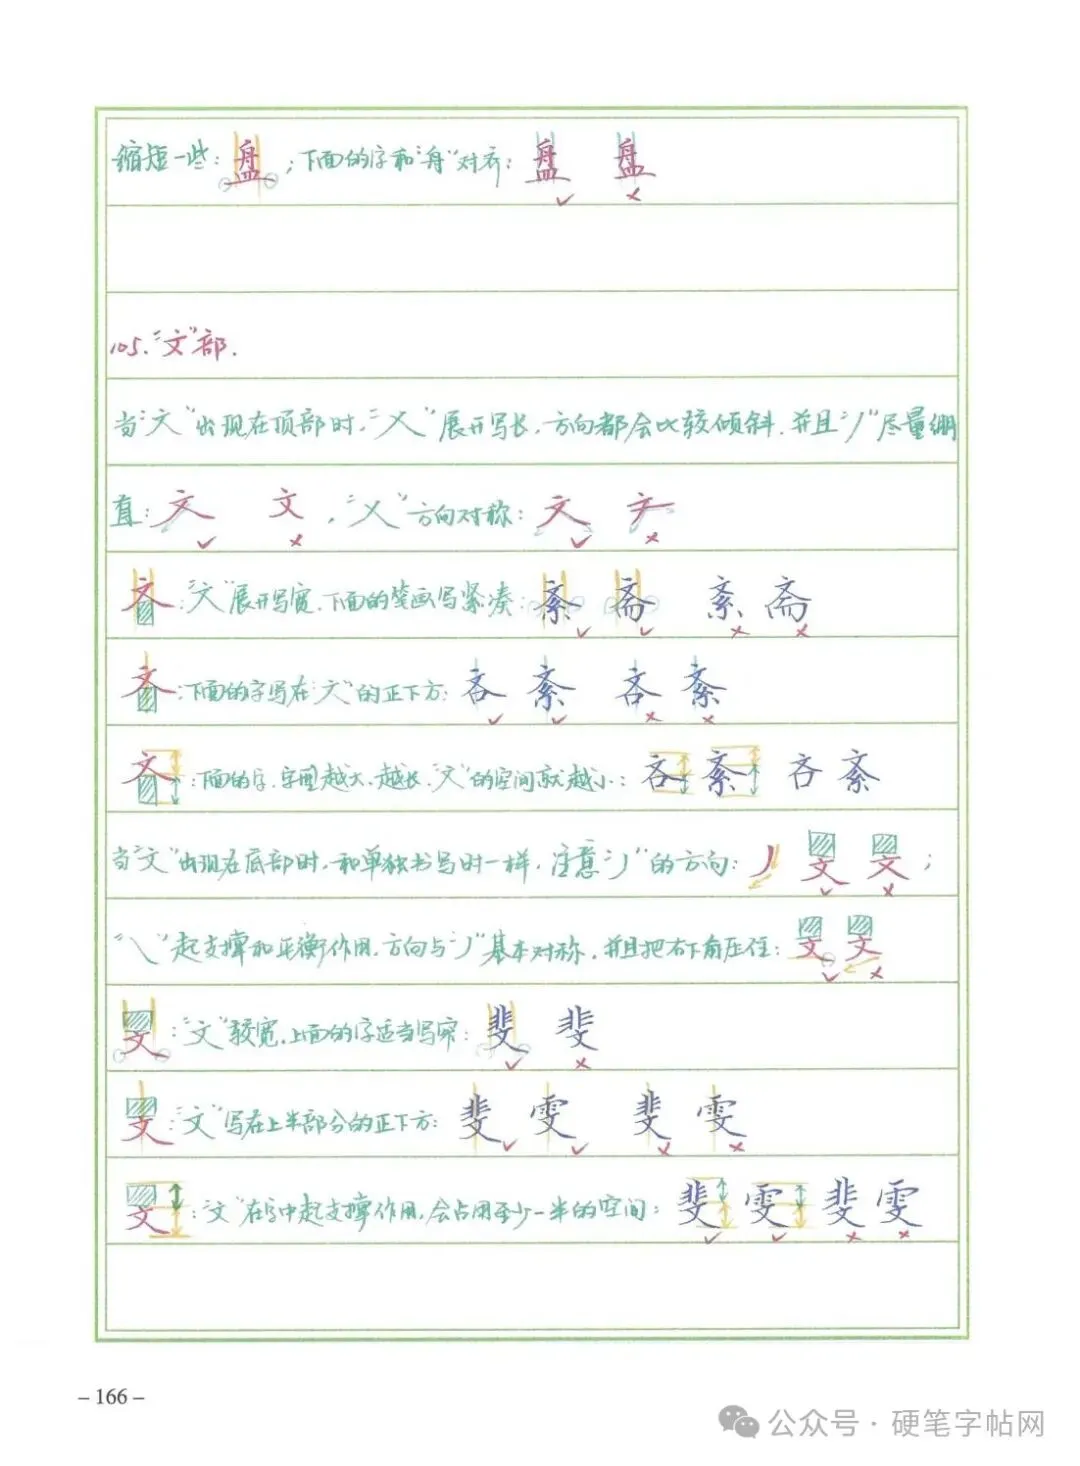 缩短一些：盘；下面的字和“舟”对齐：盘 盘
105.“文”部.
当“文”出现在顶部时，“乂”展开写长，方向都会比较倾斜.并且“丿”尽量绷
直：文 文，“乂”方向对称：文 文
：“文”展开写宽.下面的笔画写紧凑：紊 斋 紊 斋
：下面的字写在“文”的正下方：吝 紊 吝 紊
：下面的字.字型越大、越长，“文”的空间就越小：吝 紊 吝 紊
当“文”出现在底部时，和单独书写时一样，注意“丿”的方向：丿 文 文；
“㇏”起支撑和平衡作用，方向与“丿”基本对称，并且把右下角压住：文 文
：“文”较宽，上面的字适当写窄：斐 斐
：“文”写在上半部分的正下方：斐 雯 斐 雯
：“文”在字中起支撑作用，会占用至少一半的空间：斐 雯 斐 雯
– 166 –
公众号 · 硬笔字帖网